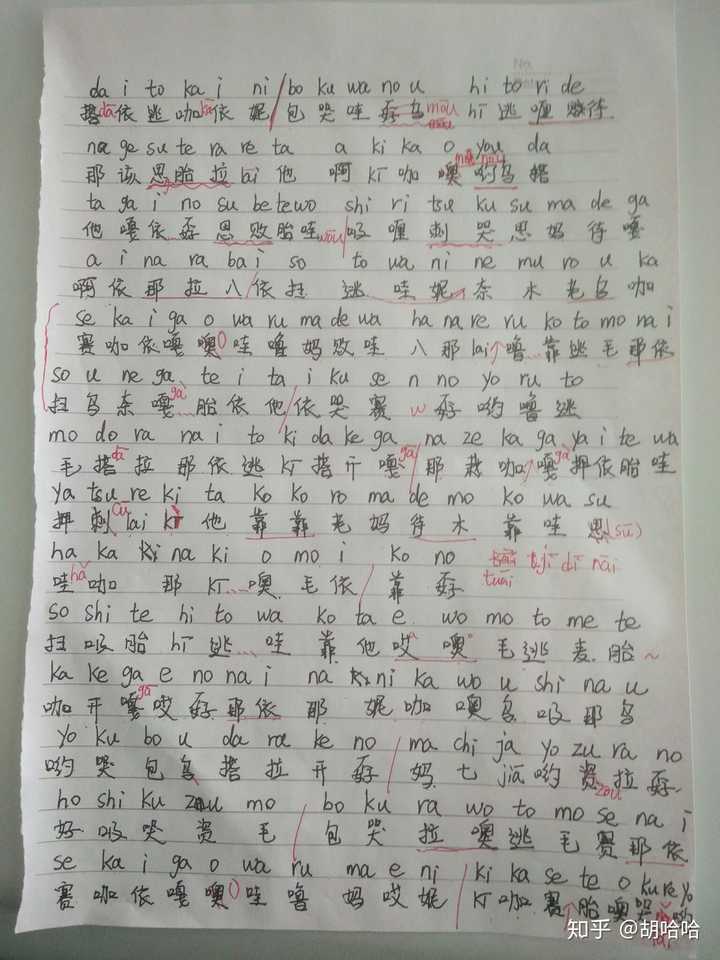 da i to ka i ni / bo ku wa no u hi to ri de
搭 dā 依 逃 咖 kā 依 妮 / 包 哭 哇 孬 乌 mōu hī 逃 喱 待
na ge su te ra re ta a ki ka o you da
那 该 思 胎 拉 lāi 他 啊 Kī 咖 噢 哟 乌 搭
ta ga i no su be te wo shi ri tsu ku su ma de ga
他 嘎 依 孬 思 败 胎 哇 wōu / 吸 喱 刺 哭 思 妈 待 嘎
a i na ra ba i so to wa ni ne mu ro u ka
啊 依 那 拉 八 / 依 扫 逃 哇 妮 奈 木 老 乌 咖
se ka i ga o wa ru ma de wa ha na re ru ko to mo na i
赛 咖 依 嘎 噢 哇 噜 妈 败 哇 八 那 lai 噜 靠 逃 毛 那 依
so u ne ga te i ta / i ku se n no yo ru to
扫 乌 奈 嘎 gā 胎 依 他 / 依 哭 赛 w 孬 哟 噜 逃
mo do ra na i to ki da ke ga na ze ka ga ya i te wa
毛 搭 dā 拉 那 依 逃 Kī 搭 开 嘎 gā / 那 栽 咖 嘎 gā 押 依 胎 哇
ya tsu re ki ta ko ko ro ma de mo ko wa su
押 刺 cī lai kī 他 靠 靠 老 妈 待 木 靠 哇 思 (sū)
ha ka na ki o mo i ko no tāi dī nāi
哇 hā 咖 那 Kī 噢 毛 依 / 靠 孬 tuāi
so shi te hi to wa ko ta e wo mo to me te
扫 吸 胎 hī 逃 哇 靠 他 哎 噢 毛 逃 麦 胎 ~
ka ke ga e no na i na ni ka wo u shi na u
咖 开 嘎 gā 哎 孬 那 依 那 妮 咖 噢 乌 吸 那 乌
yo ku bo u da ra ke no / ma chi ja yo zu ra no
哟 哭 包 乌 搭 拉 开 孬 / 妈 七 jiā 哟 资 zou 拉 孬
ho shi ku zu mo / bo ku ra wo to mo se na i
好 吸 哭 资 毛 包 哭 拉 噢 逃 毛 赛 那 依
se ka i ga o wa ru ma e ni / ki ka se te o ku re yo
赛 咖 依 嘎 噢 哇 噜 妈 哎 妮 / Kī 咖 赛 胎 噢 哭 哟
知乎 @胡哈哈